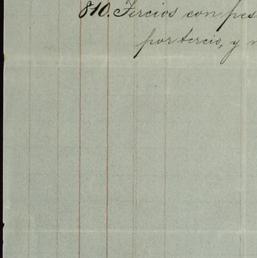 810. Tercios con pes
por tercio, y